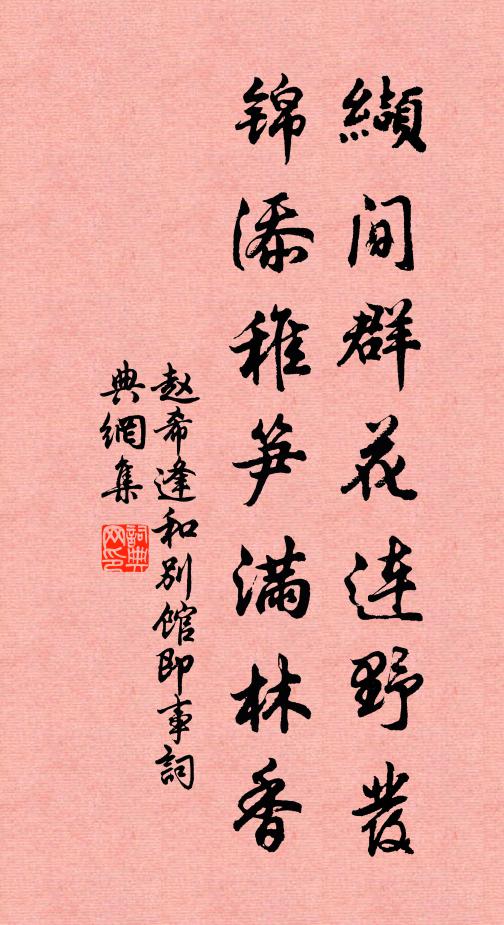 纈间群花连野發
锦添稚笋满林香
赵希逢和别馆即事詞
典網集
詞典
网印